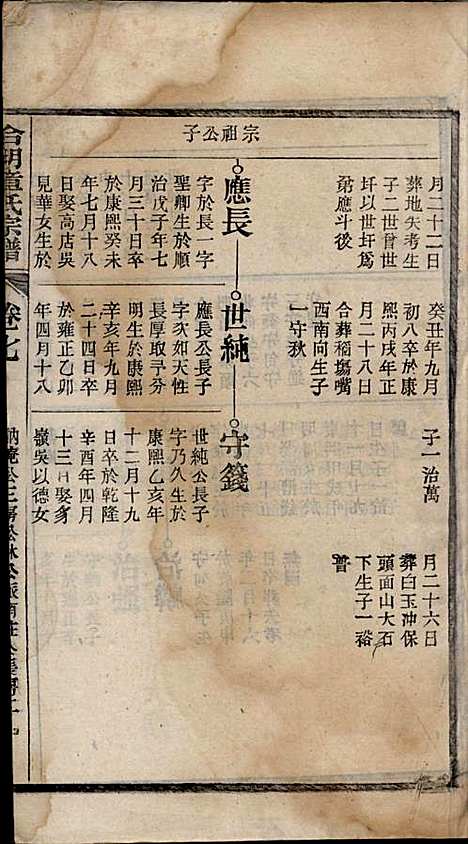 宗祖公子
月二十二日
葬地失考生
子二世晉世
圩以世圩爲
弟應斗後
癸丑年九月
初八卒於康
熙丙戌年正
月二十八日
合葬稻塲嘴
西南向生子
一守秋
子一治萬
月二十六日
葬白玉冲保
頭面山大石
下生子一裕
普
應長
世純
守篯
字於長一字
聖卿生於順
治戊子年七
月三十日卒
於康熙癸未
年七月十八
日娶高店吳
見華女生於
應長公長子
字狄如天性
長厚取予分
明生於康熙
辛亥年九月
二十四日卒
於雍正乙卯
年四月十八
世純公長子
字乃久生於
康熙乙亥年
十二月十九
日卒於乾隆
辛酉年四月
十三日娶畲
嶺吳以德女
合明章氏宗譜
卷七